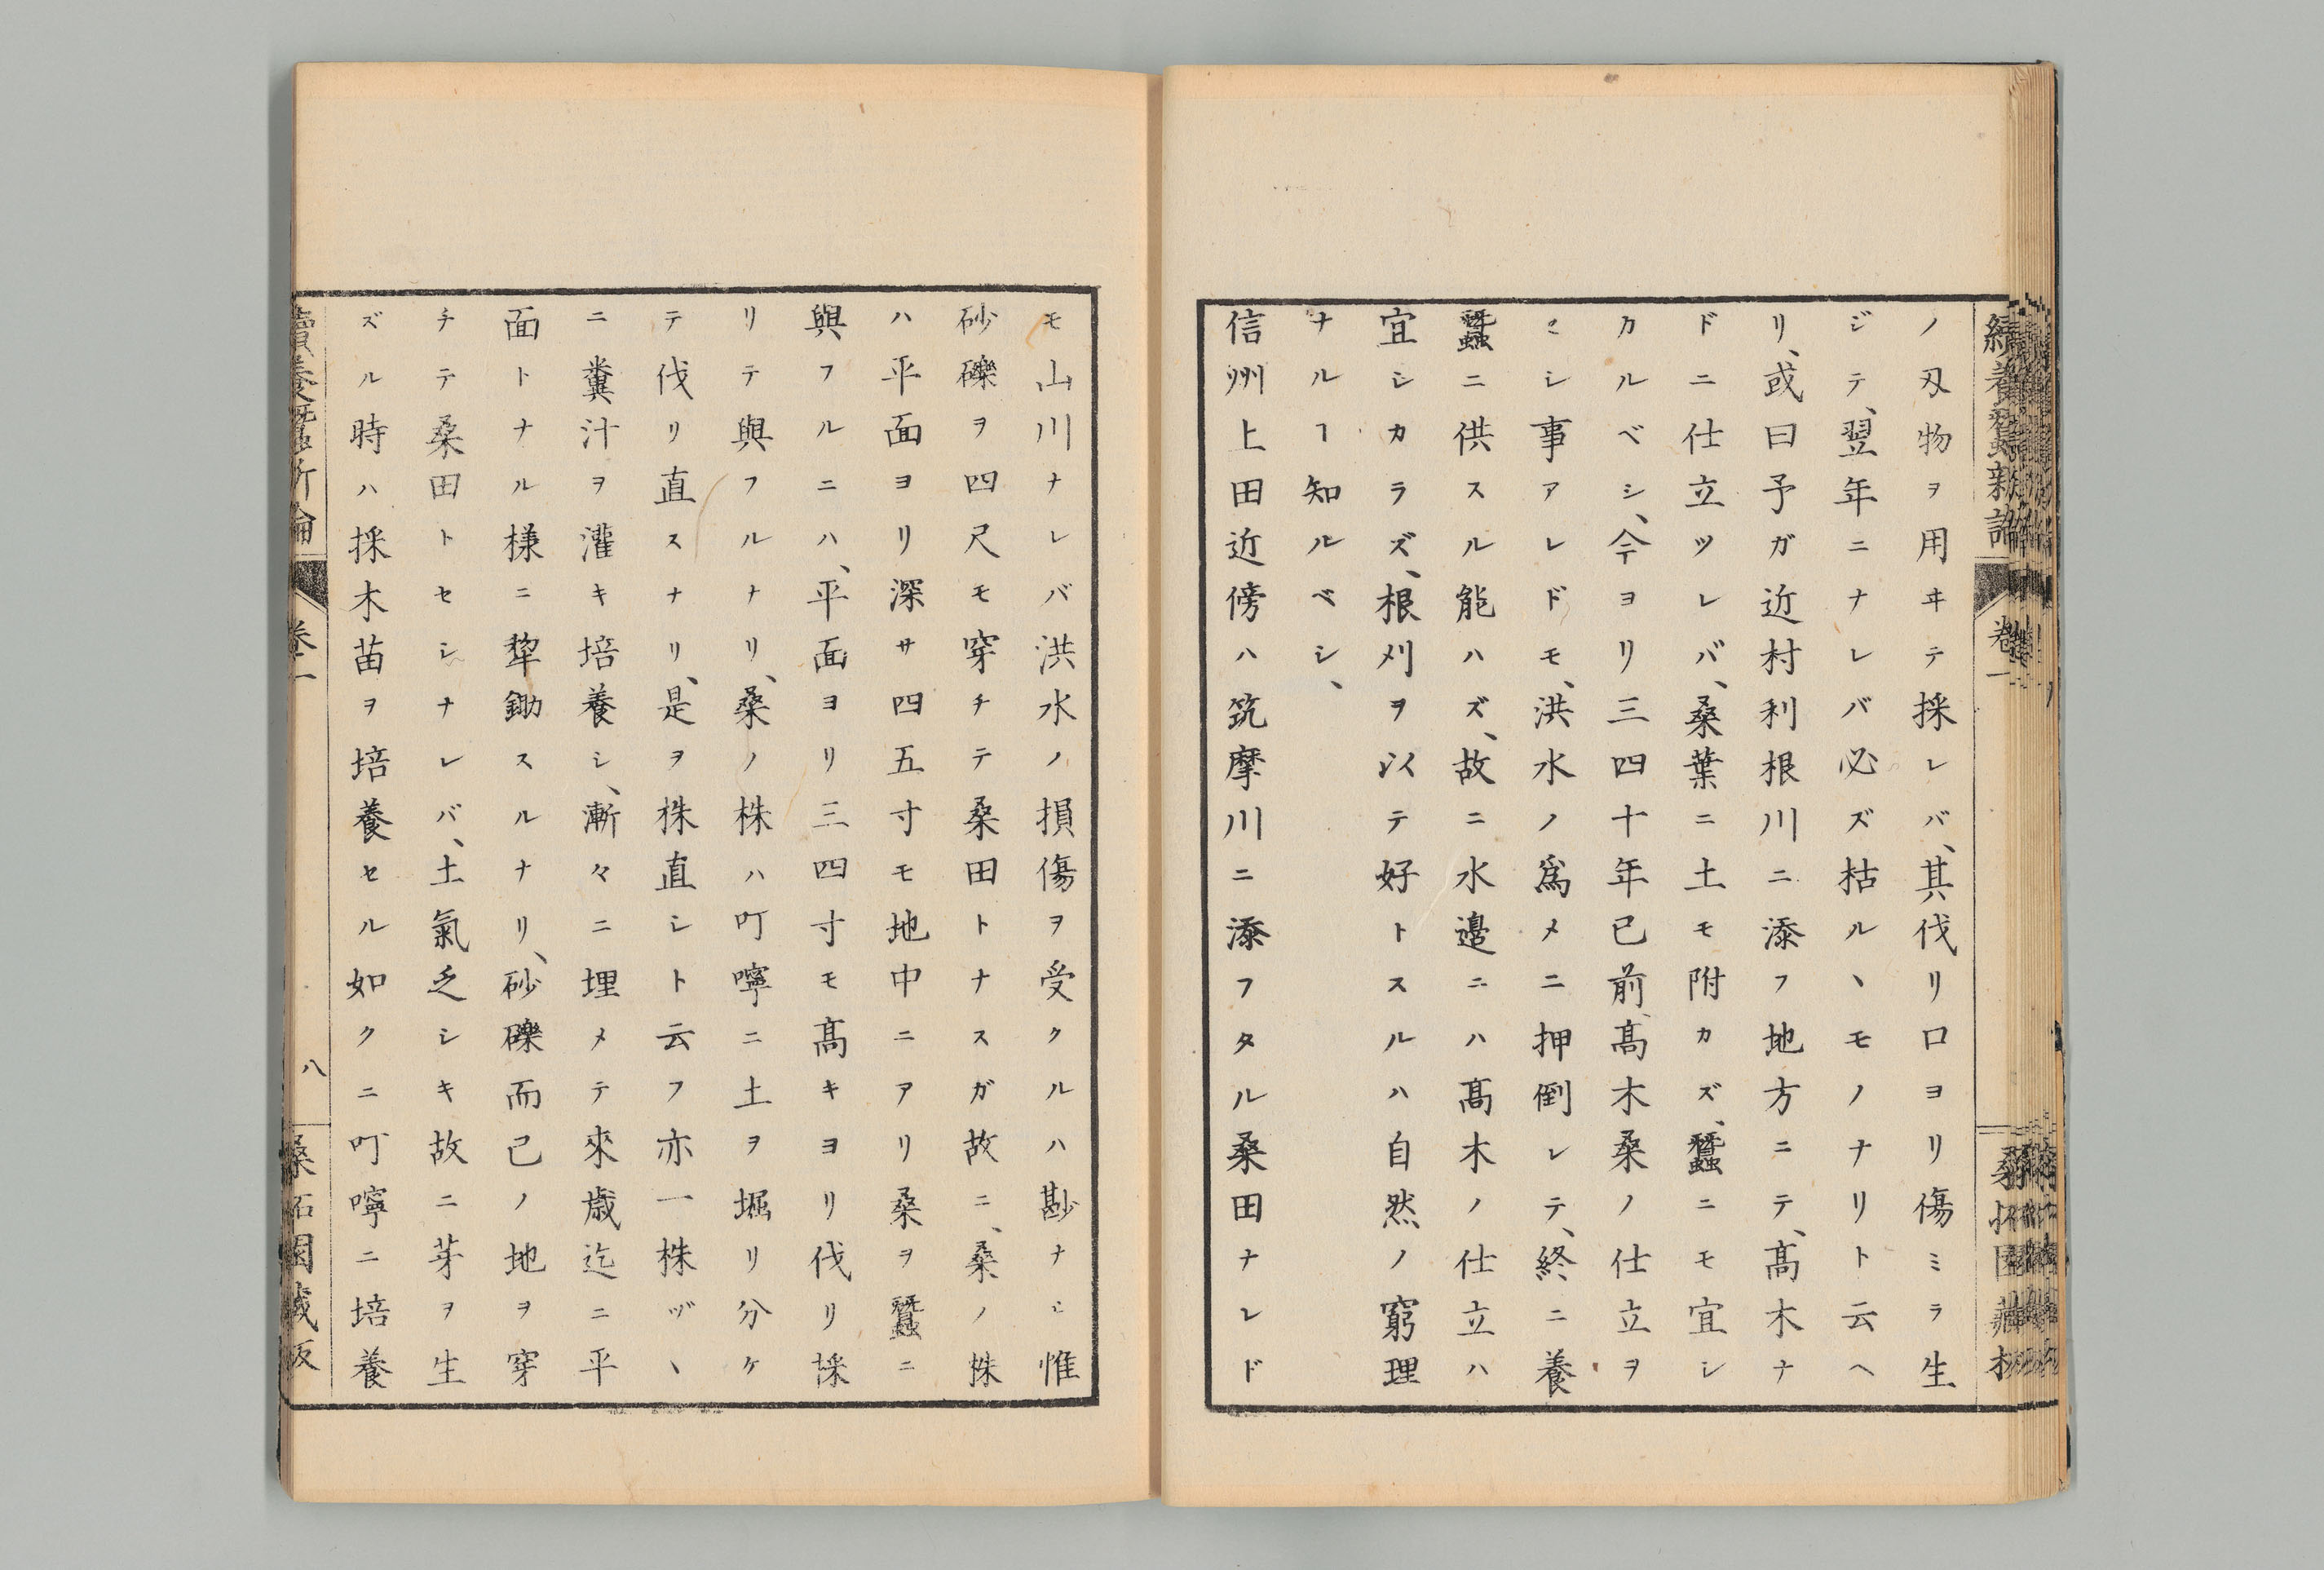 續養蠶新論 卷一
ノ刄物ヲ用ヰテ採レバ、其伐リ口ヨリ傷ミヲ生
ジテ、翌年ニナレバ必ズ枯ルヽモノナリト云ヘ
リ、或曰予ガ近村利根川ニ添フ地方ニテ、髙木ナ
ドニ仕立ツレバ、桑葉ニ土モ附カズ、蠶ニモ宜シ
カルベシ、今ヨリ三四十年已前、髙木桑ノ仕立ヲ
セシ事アレドモ、洪水ノ爲メニ押倒レテ、終ニ養
蠶ニ供スル能ハズ、故ニ水邉ニハ髙木ノ仕立ハ
宜シカラズ、根刈ヲ以テ好トスルハ自然ノ窮理
ナルヿ知ルベシ、
信州上田近傍ハ筑摩川ニ添フタル桑田ナレド
モ山川ナレバ洪水ノ損傷ヲ受クルハ尠ナシ惟
砂礫ヲ四尺モ穿チテ桑田トナスガ故ニ、桑ノ株
ハ平面ヨリ深サ四五寸モ地中ニアリ桑ヲ蠶ニ
與フルニハ、平面ヨリ三四寸モ髙キヨリ伐リ採
リテ與フルナリ、桑ノ株ハ叮嚀ニ土ヲ堀リ分ケ
テ伐リ直スナリ、是ヲ株直シト云フ亦一株ヅヽ
ニ糞汁ヲ灌キ培養シ、漸々ニ埋メテ來歳迄ニ平
面トナル様ニ犂鋤スルナリ、砂礫而已ノ地ヲ穿
チテ桑田トセシナレバ、土氣乏シキ故ニ芽ヲ生
ズル時ハ採木苗ヲ培養セル如クニ叮嚀ニ培養
續養蠶新論 卷一 八 桑柘園藏版